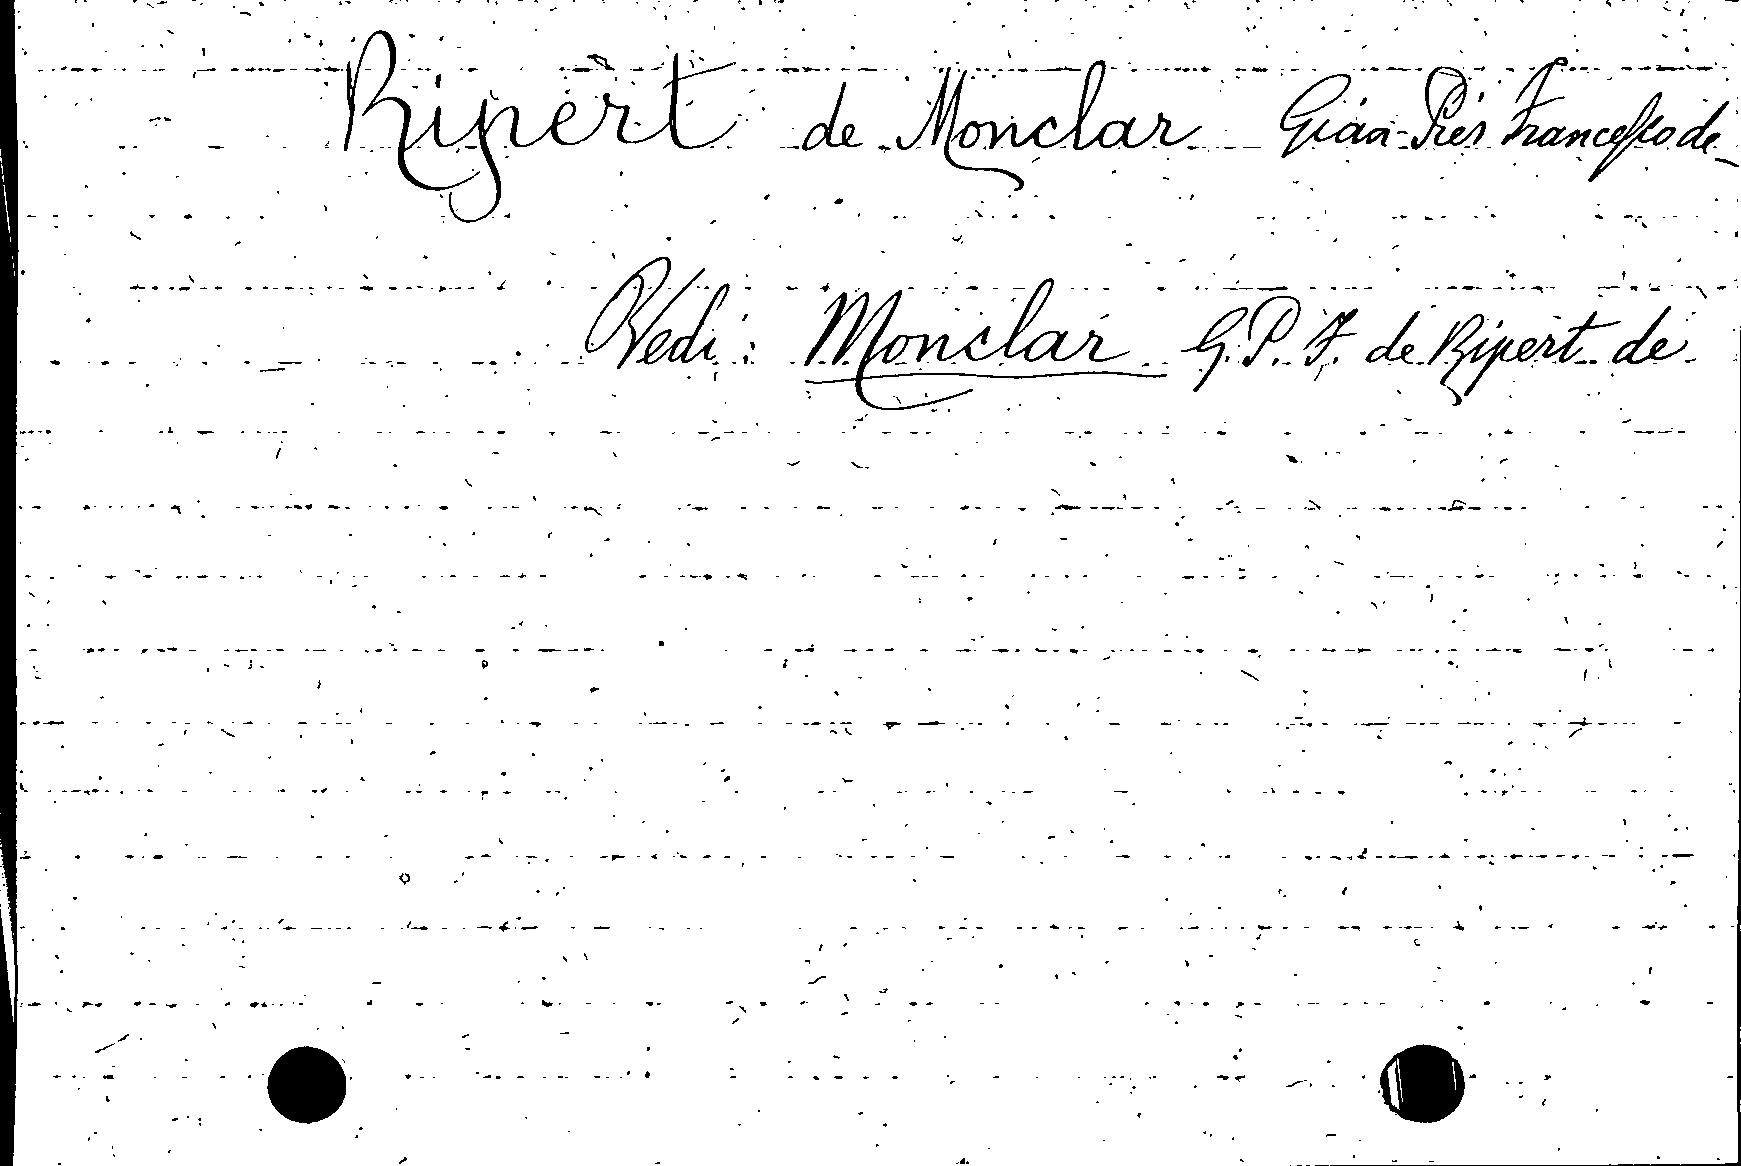 Ripert de Monclar Gian-Pier Francesco de
Vedi: Monclar G. P. F. de Ripert de